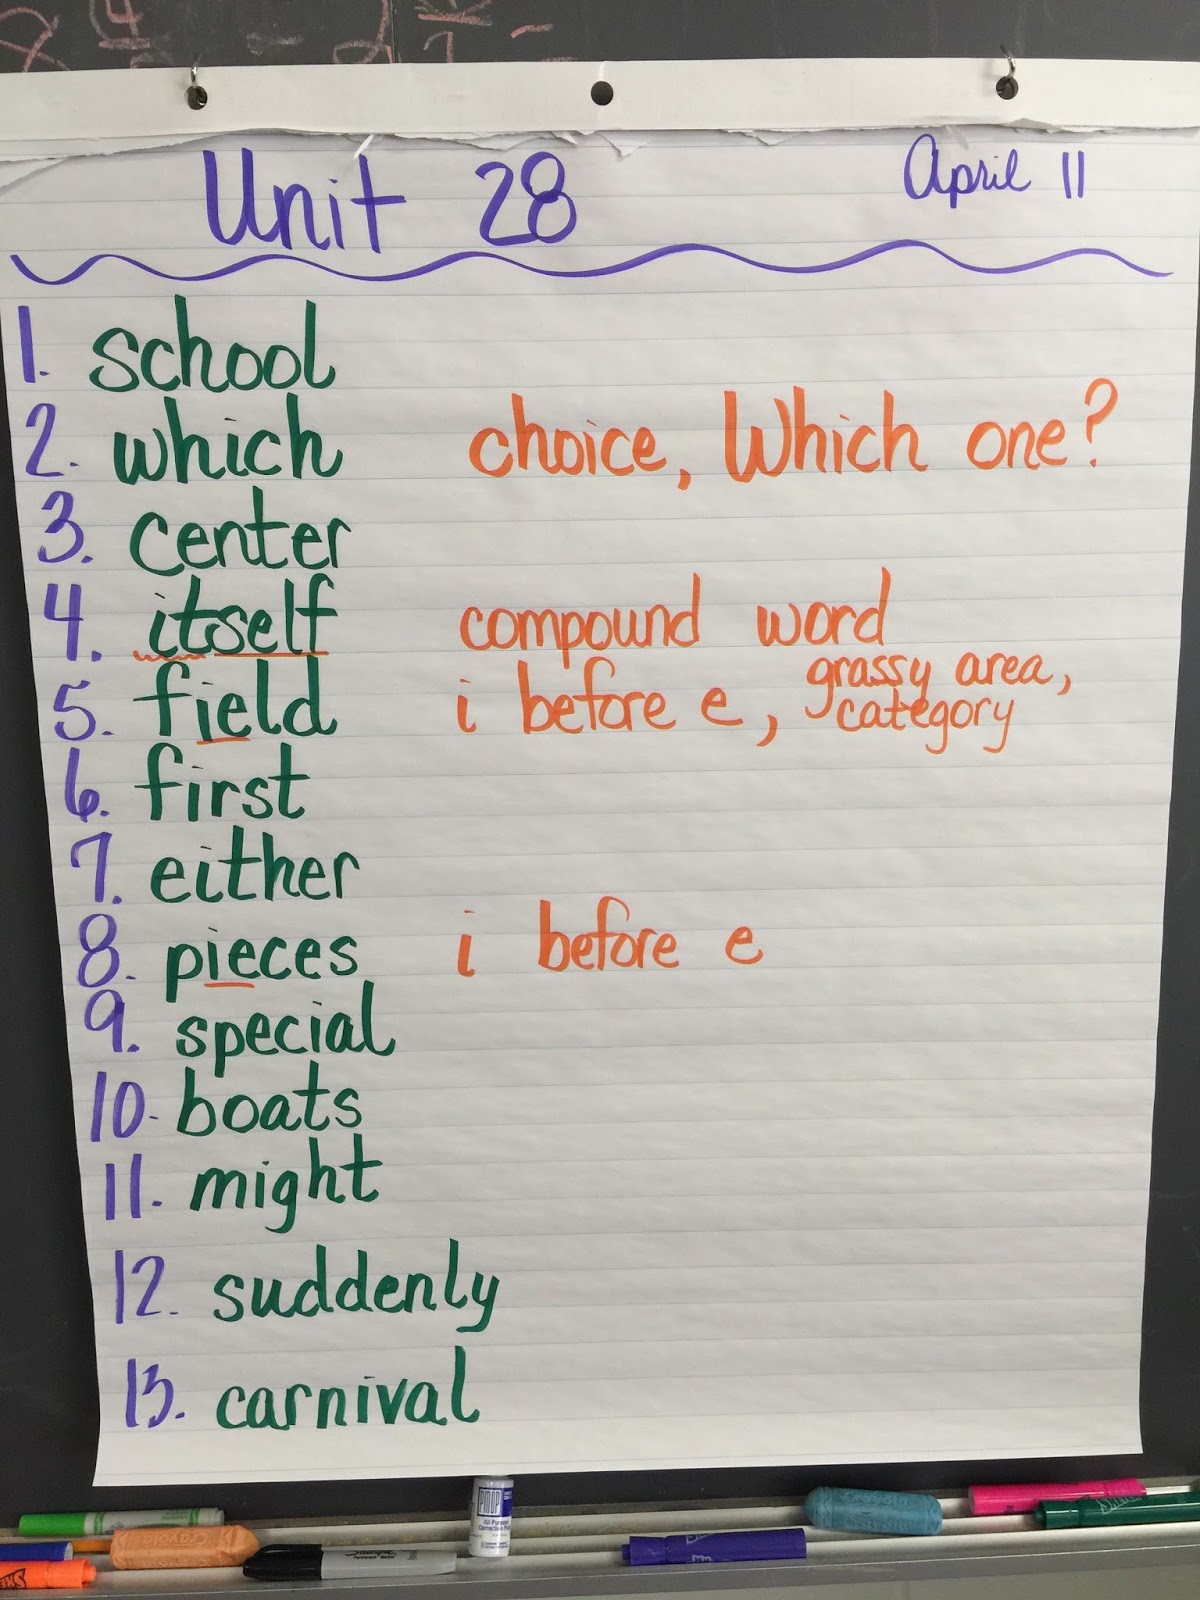 Unit 28 April 11
1. school
2. which choice, Which one?
3. center
4. itself compound word
5. field i before e, grassy area, category
6. first
7. either
8. pieces i before e
9. special
10. boats
11. might
12. suddenly
13. carnival
Crayola
Sharpie
All Purpose